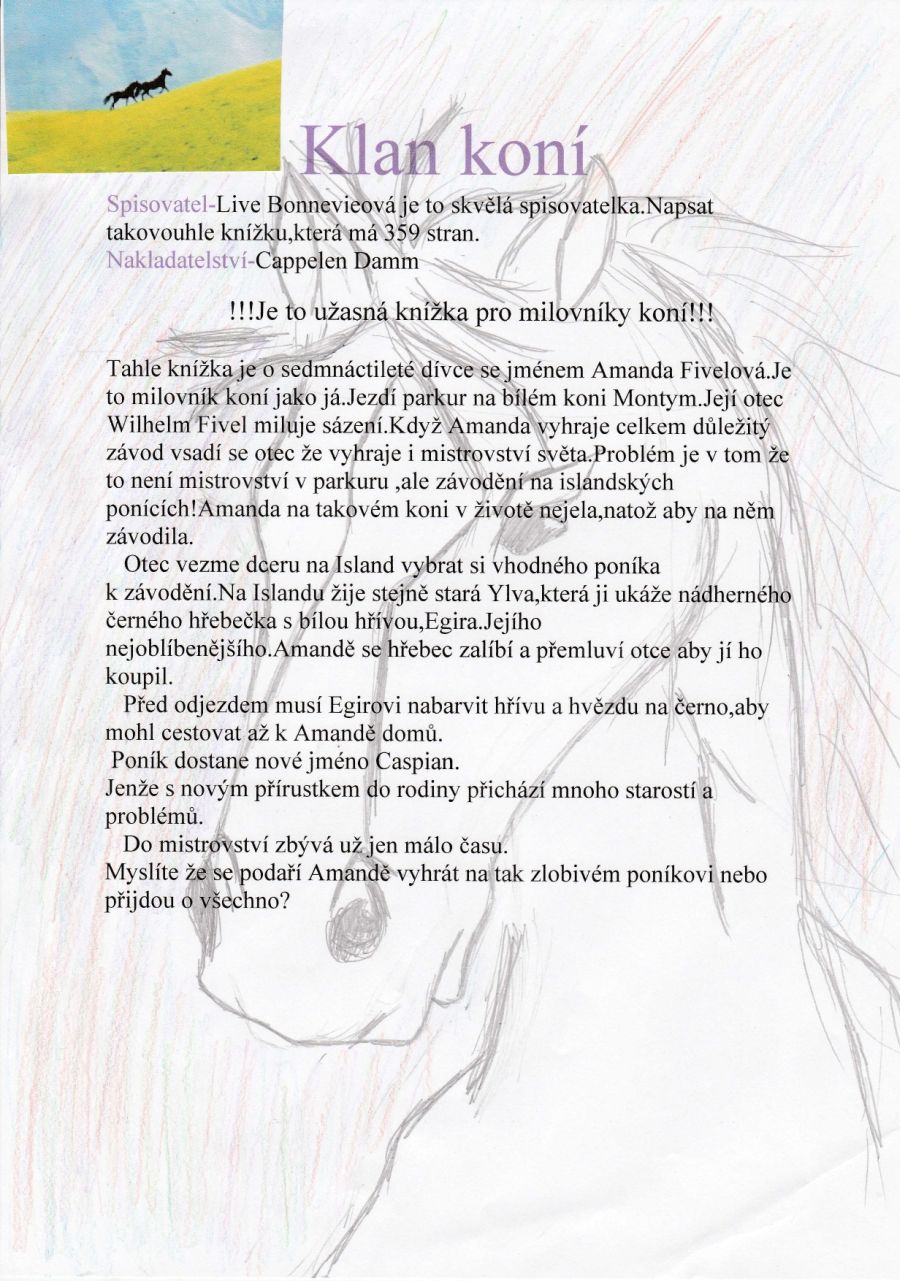 Klan koní
Spisovatel-Live Bonnevieová je to skvělá spisovatelka.Napsat
takovouhle knížku,která má 359 stran.
Nakladatelství-Cappelen Damm
!!!Je to užasná knížka pro milovníky koní!!!
Tahle knížka je o sedmnáctileté dívce se jménem Amanda Fivelová.Je
to milovník koní jako já.Jezdí parkur na bílém koni Montym.Její otec
Wilhelm Fivel miluje sázení.Když Amanda vyhraje celkem důležitý
závod vsadí se otec že vyhraje i mistrovství světa.Problém je v tom že
to není mistrovství v parkuru ,ale závodění na islandských
ponících!Amanda na takovém koni v životě nejela,natož aby na něm
závodila.
Otec vezme dceru na Island vybrat si vhodného poníka
k závodění.Na Islandu žije stejně stará Ylva,která ji ukáže nádherného
černého hřebečka s bílou hřívou,Egira.Jejího
nejoblíbenějšího.Amandě se hřebec zalíbí a přemluví otce aby jí ho
koupil.
Před odjezdem musí Egirovi nabarvit hřívu a hvězdu na černo,aby
mohl cestovat až k Amandě domů.
Poník dostane nové jméno Caspian.
Jenže s novým přírustkem do rodiny přichází mnoho starostí a
problémů.
Do mistrovství zbývá už jen málo času.
Myslíte že se podaří Amandě vyhrát na tak zlobivém poníkovi nebo
přijdou o všechno?